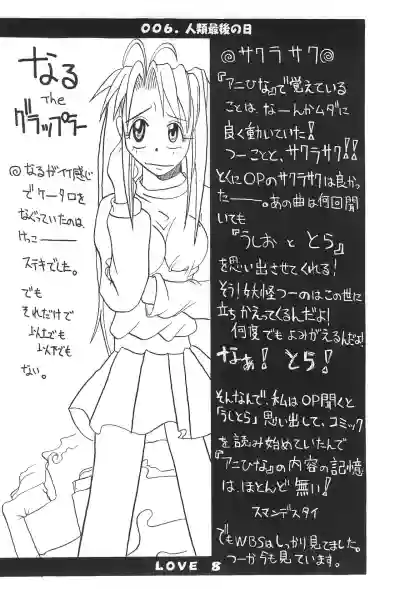 006.人類最後の日
なる
The
グラップラー
◎なるがイイ感じ
でケータロを
なぐっていたのは、
けっこーーー
ステキでした。
でも
それだけで
以上でも
以下でも
ない。
◎サクラサク◎
『アニひな』で覚えている
ことは、なーんかムダに
良く動いていた!
つーことと、サクラサク!!
とくにOPのサクラサクは良かっ
たーーー。あの曲は何回聞
いても
『うしおととら』
を思い出させてくれる!
そう!妖怪つーのはこの世に
立ちかえってくるんだよ!
何度でもよみがえるんだよ!
なぁ!とら!
そんなんで、私はOP聞くと
「うしとら」思い出して、コミック
を読み始めていたんで
『アニひな』の内容の記憶
は、ほとんど無い!
スマンデスタイ
でもWBSはしっかり見てました。
つーか今も見ています。
LOVE 8